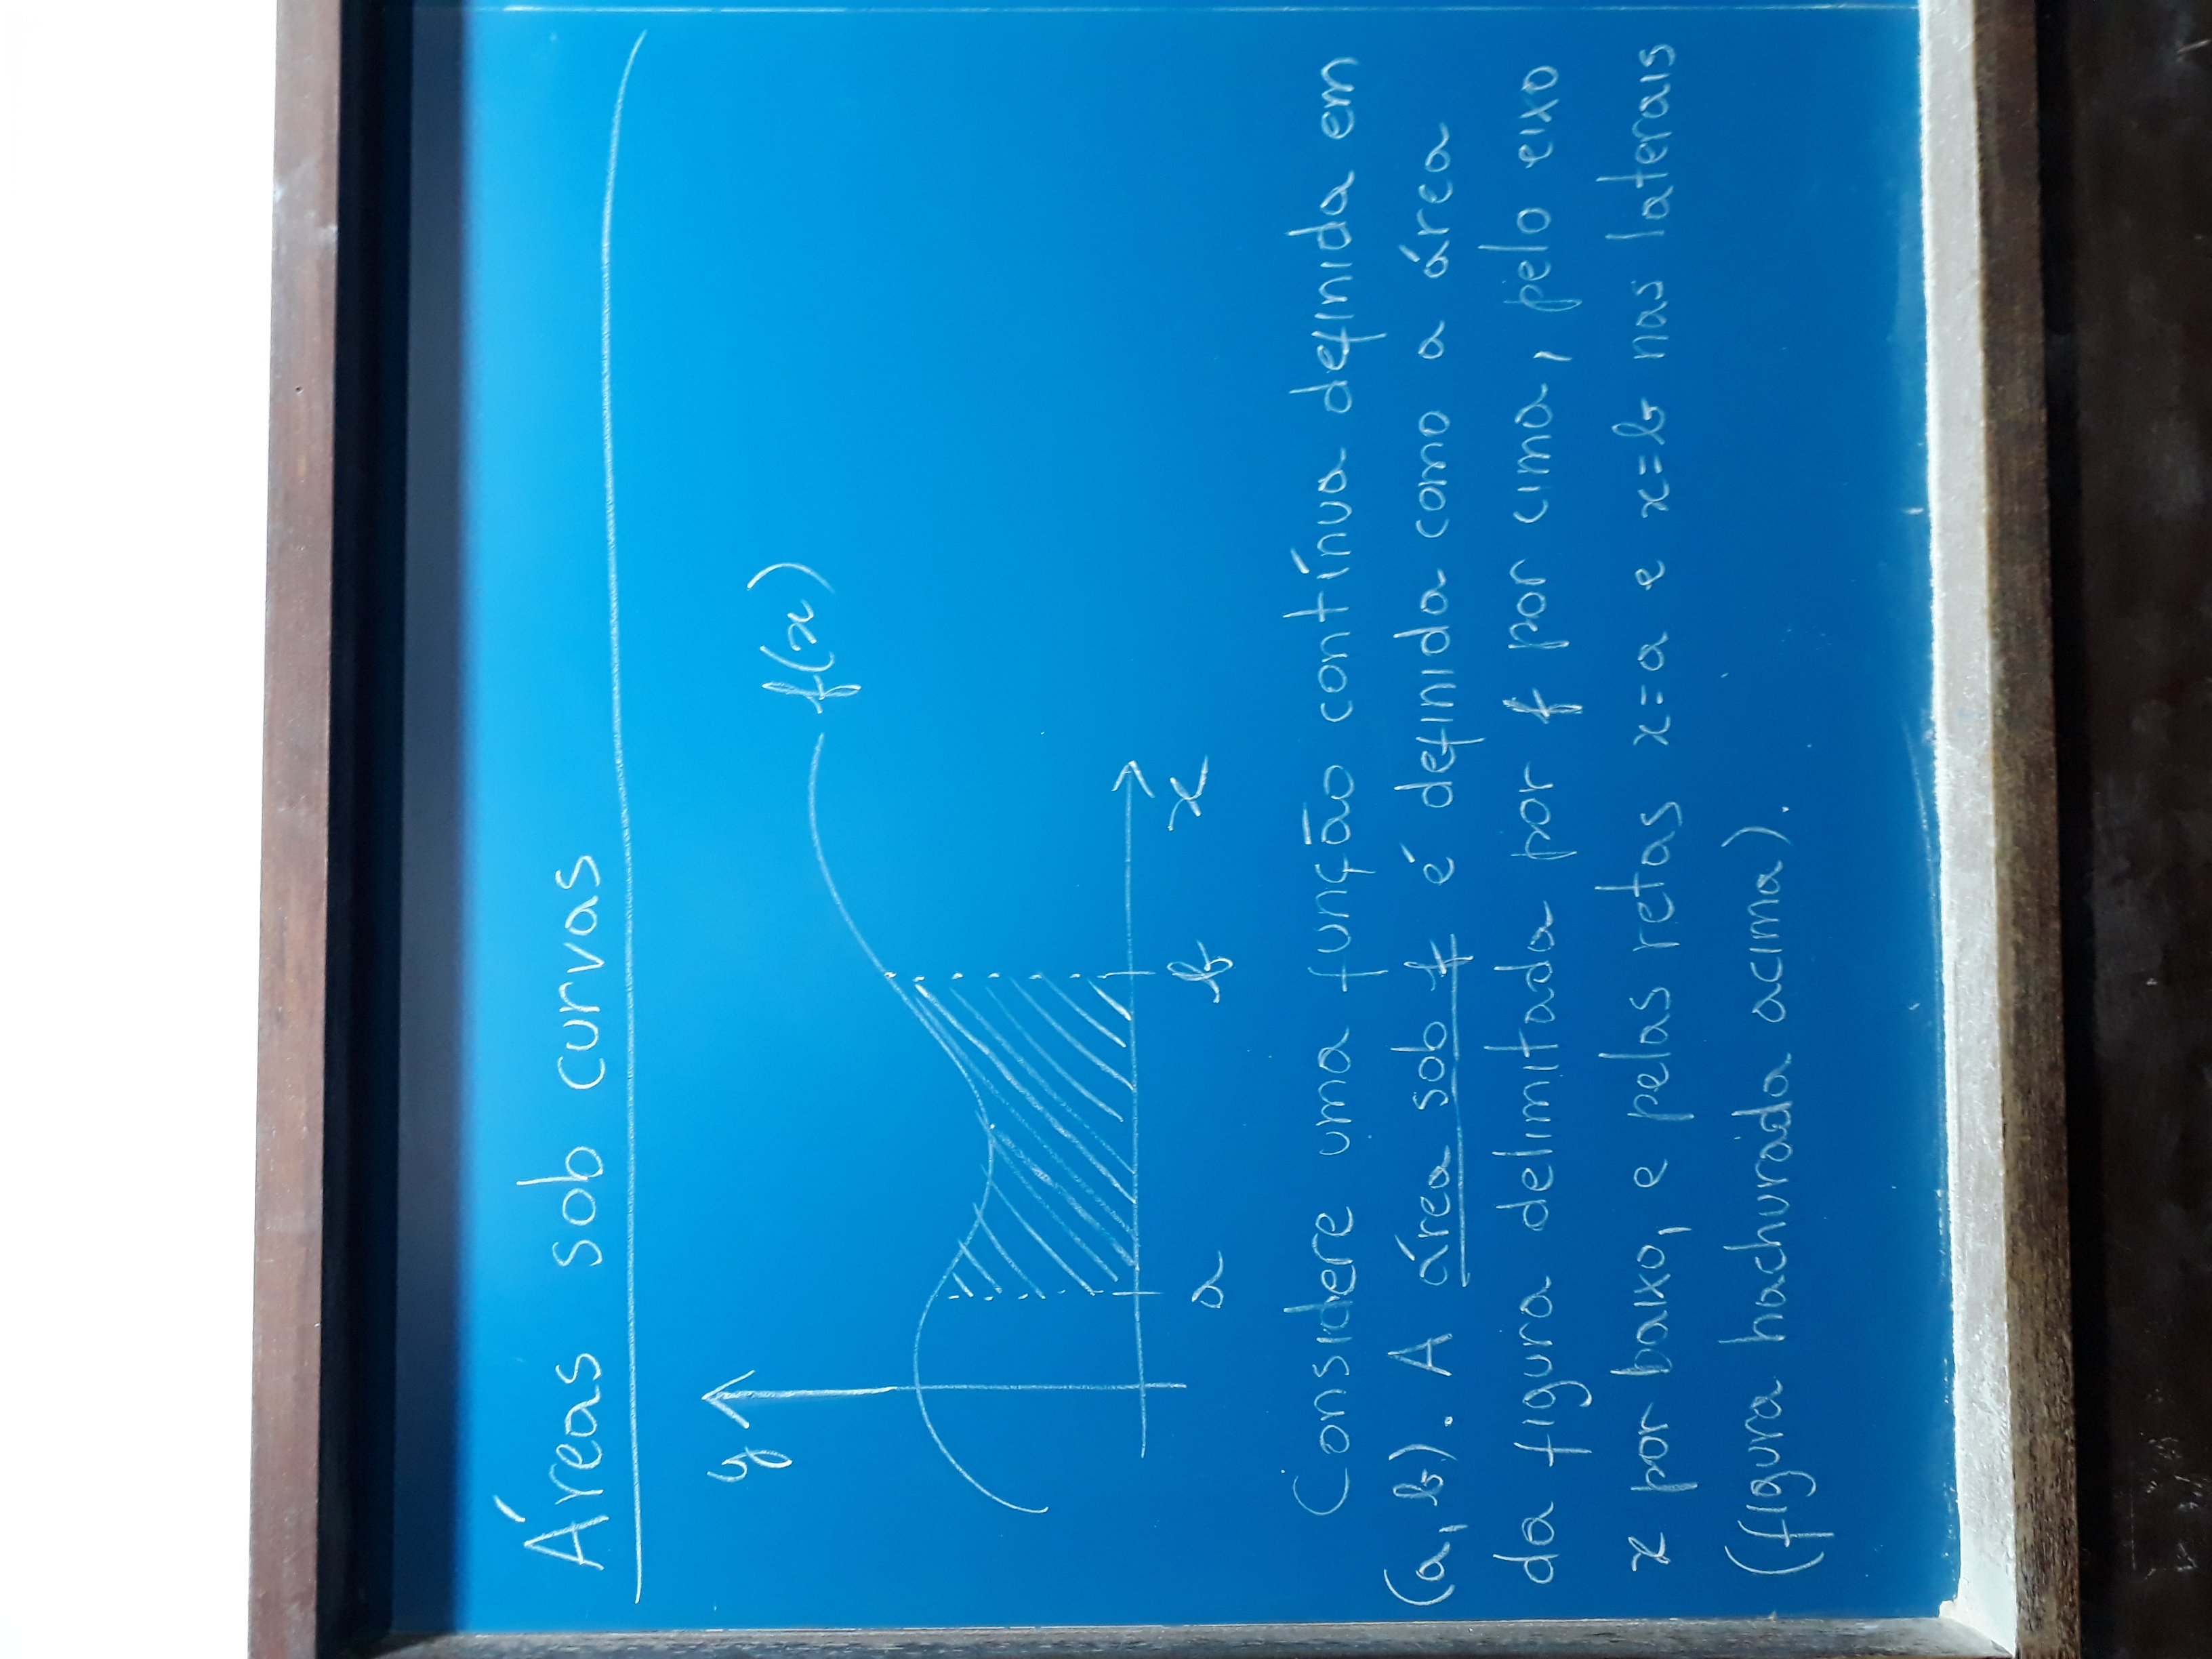 Áreas sob curvas
y
f(x)
a b x
Considere uma função contínua definida em
(a, b). A área sob f é definida como a área
da figura delimitada por f por cima, pelo eixo
x por baixo, e pelas retas x=a e x=b nas laterais
(figura hachurada acima).